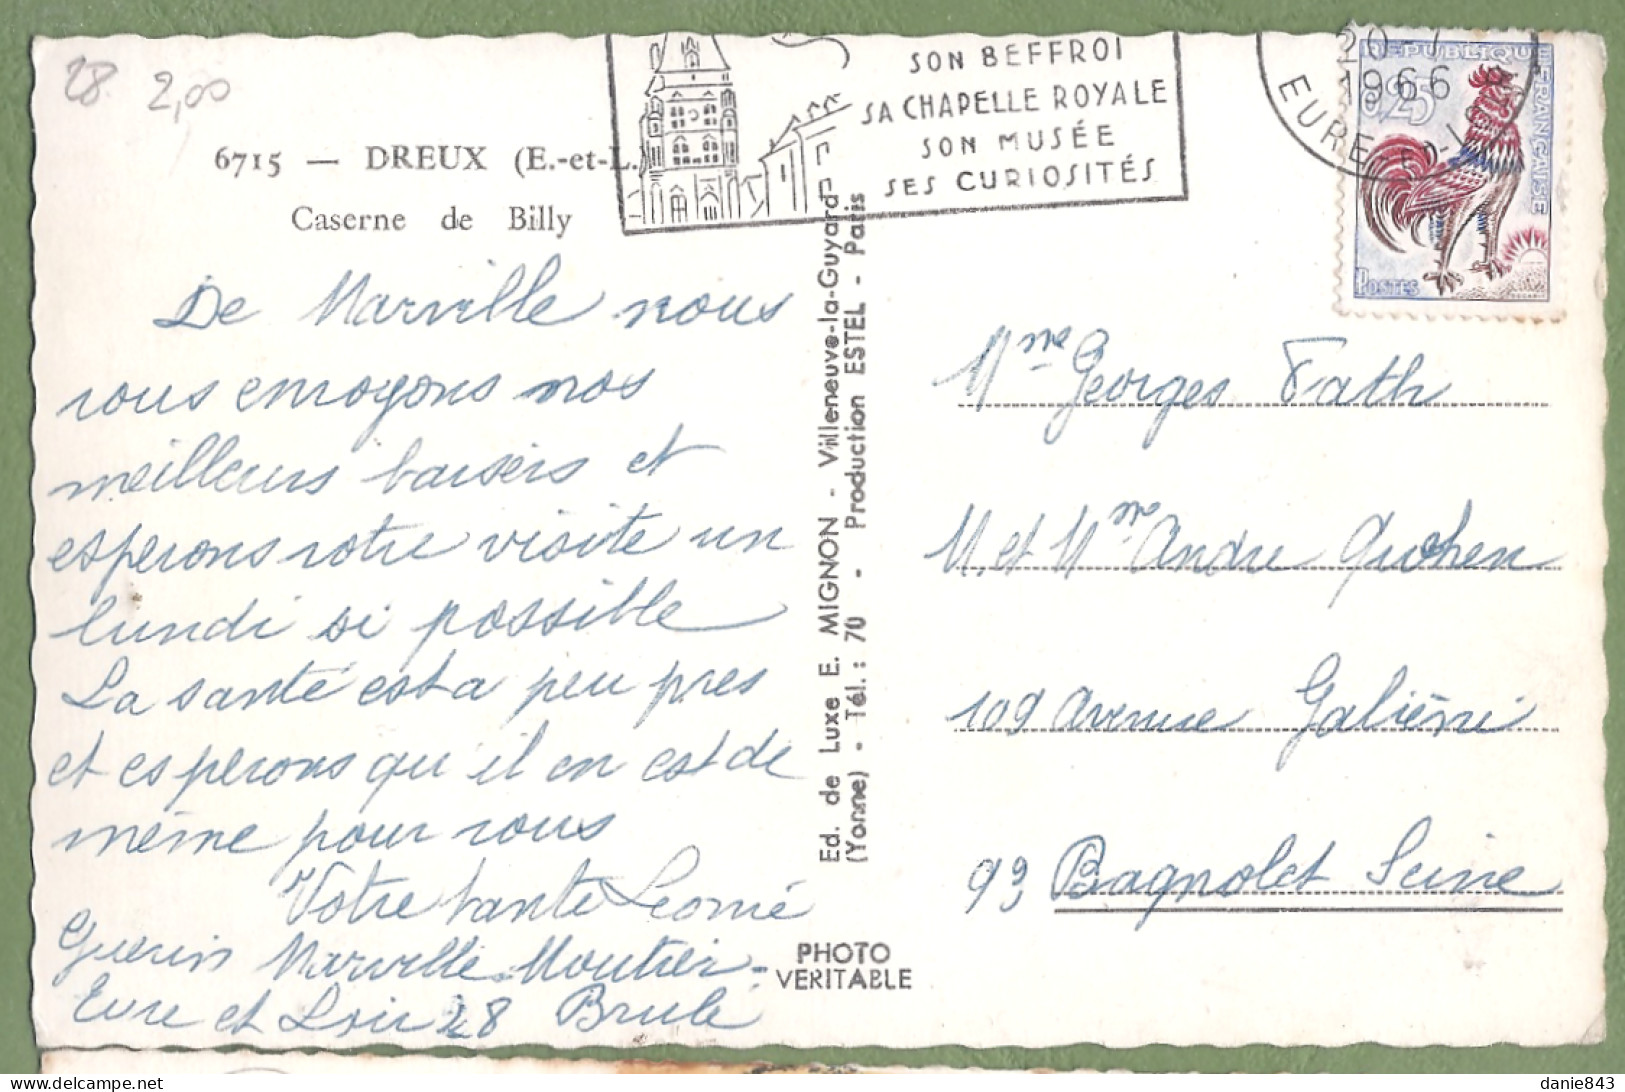 28
2,00
6715 — DREUX (E.-et-L.)
Caserne de Billy
SON BEFFROI
SA CHAPELLE ROYALE
SON MUSÉE
SES CURIOSITÉS
20
1966
EURE-
REPUBLIQUE FRANÇAISE
0,25
POSTES
De Marville nous
vous envoyons nos
meilleurs baisers et
esperons votre visite un
lundi si possible
La santé est a peu pres
et esperons qu'il en est de
même pour vous
Votre tante Leonie
Guerin Marville Moutier-
Eure et Loir 28 Brulé
Ed. de Luxe E. MIGNON - Villeneuve-la-Guyard
(Yonne) - Tél. : 70 - Production ESTEL - Paris
PHOTO
VERITABLE
Mme Georges Fath
M. et Mme Andre
109 Avenue Galiéni
93 Bagnolet Seine
danie843